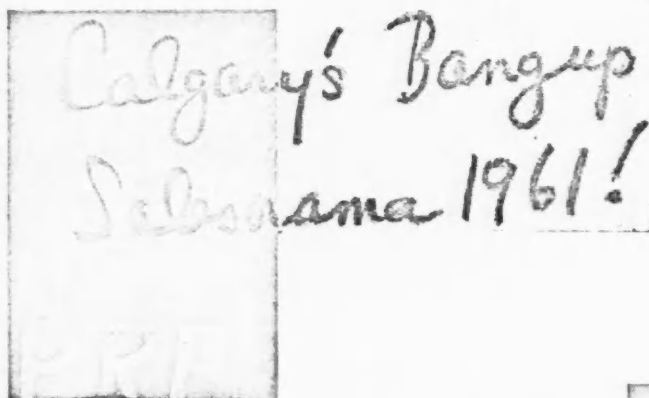 Calgary's Bangup
Salesarama 1961!